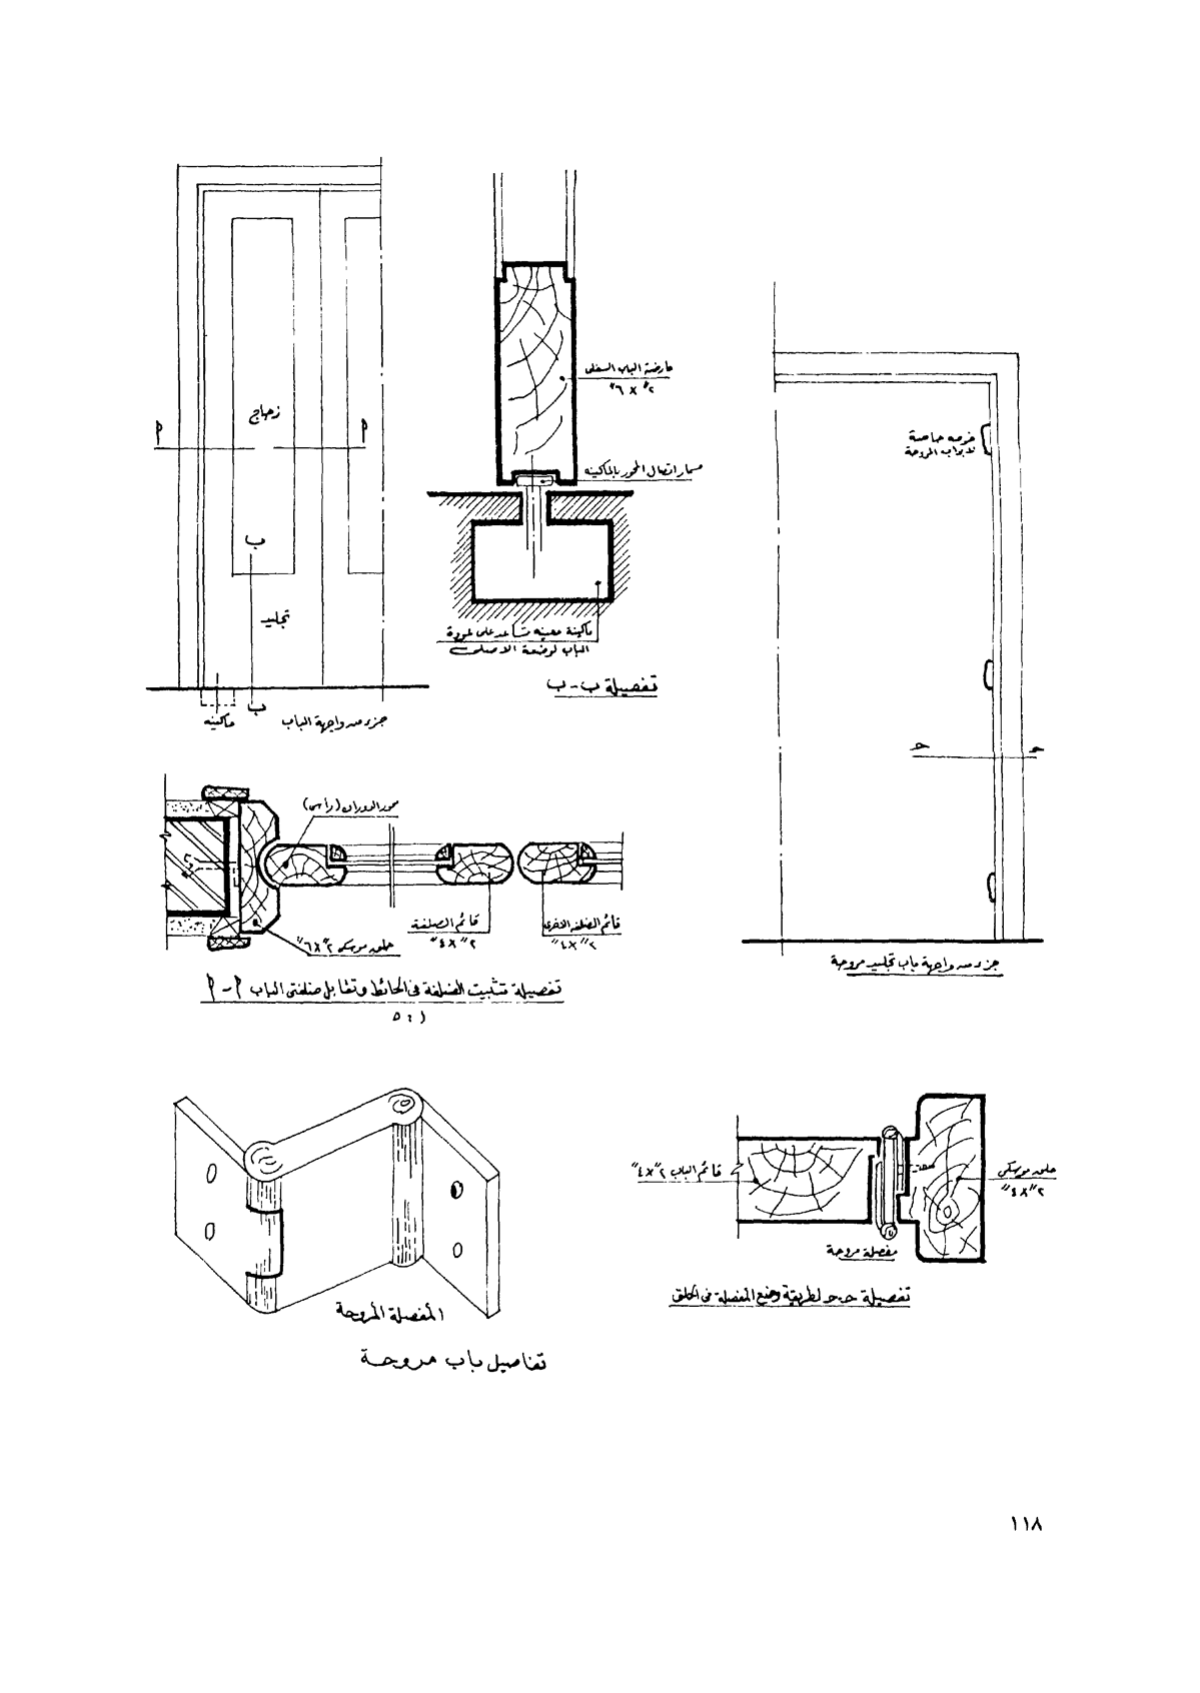 زجاج
م
م
ب
تجليد
ب
ماكينه
جزء من واجهة الباب
عارضة الباب السفلى
٢" × ٦"
مسمار اتصال المحور بالماكينه
ماكينة معينه تساعد على عودة
الباب لوضعة الأصلى
تفصيلة ب - ب
خوصه خاصة
لأبواب المروحة
ح
ح
جزء من واجهة باب تجليد مروحة
محور الدوران (رأسى)
قائم الضلفة
٢" × ٤"
قائم الضلفة الأخرى
٢" × ٤"
حلق موسكى ٢" × ٦"
تفصيلة تثبيت الضلفة فى الحائط وتقابل ضلفتى الباب م - م
١ : ٥
المفصلة المروحة
قائم الباب ٢" × ٤"
حلق موسكى
٢" × ٤"
مفصلة مروحة
تفصيلة ح.ح لطريقة وضع المفصلة فى الحلق
تفاصيل باب مروحة
١١٨